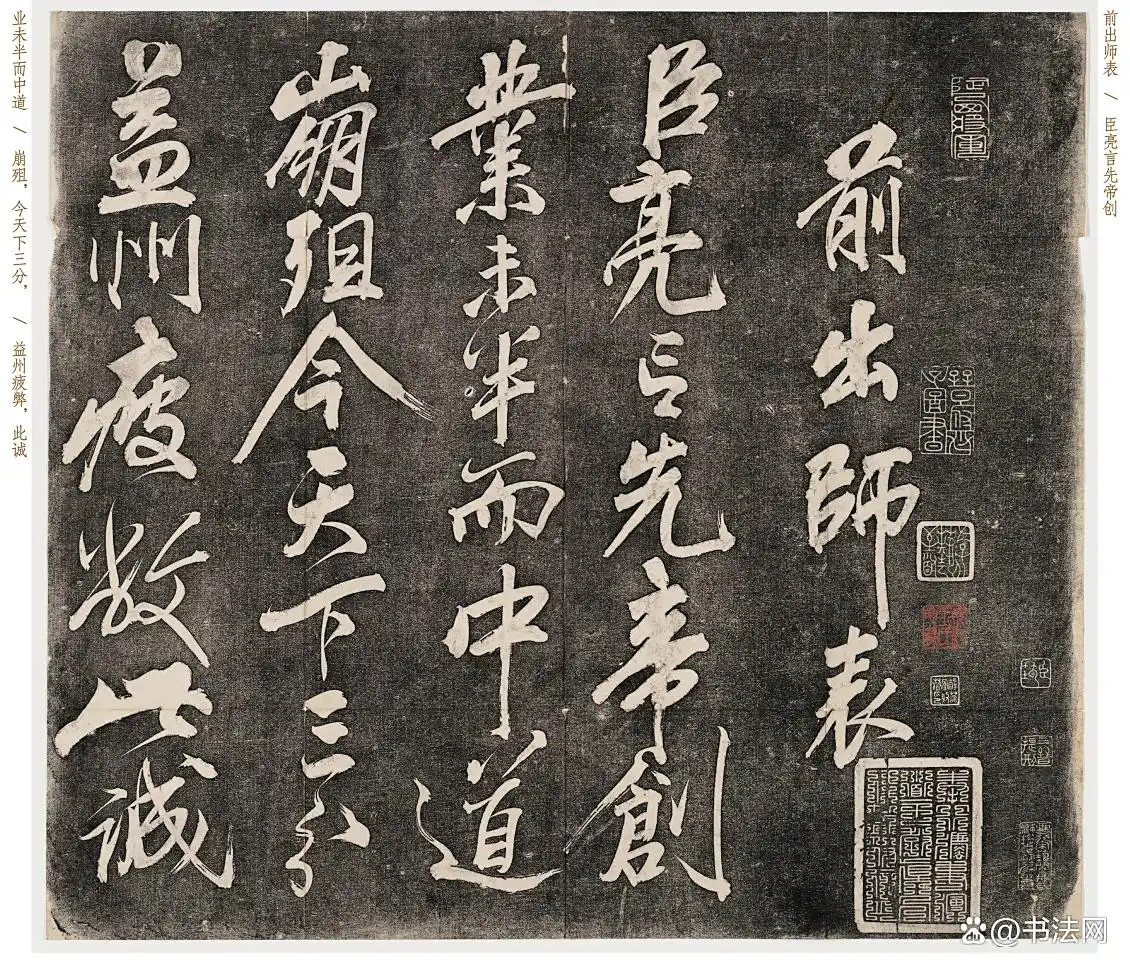 前出师表 / 臣亮言先帝创
前出師表
臣亮言先帝創
業未半而中道
崩殂今天下三分
益州疲敝此誠
业未半而中道 / 崩殂，今天下三分， / 益州疲弊，此诚
@书法网